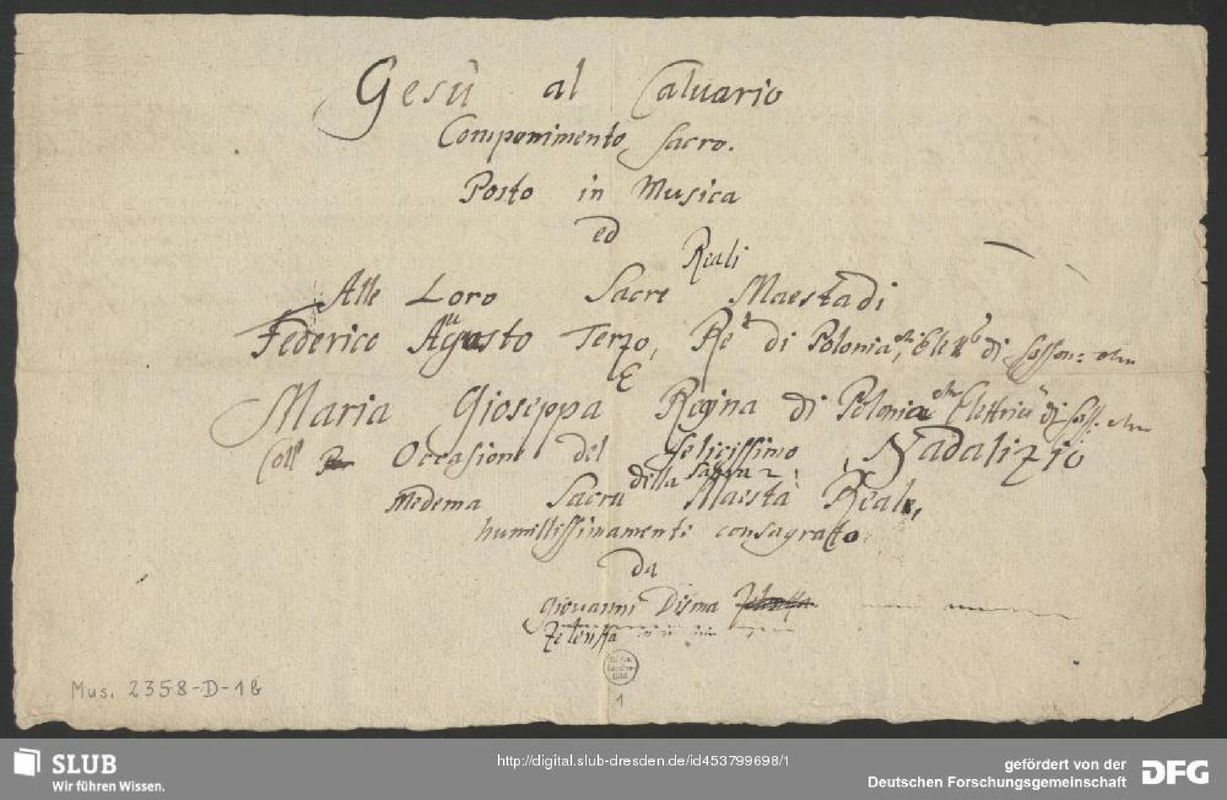 Gesù al Caluario
Componimento Sacro.
Posto in Musica
ed
Reali
Alle Loro Sacre Maestadi
Federico Augusto Terzo, Rè di Polonia, di Sasson:
E
Maria Gioseppa Regina di Polonia di Sass.
Coll Occasione del felicissimo Nadalizio
della
Medema Sacra Maestà Reale,
humillissimamente consagrato
da
Giovanni Disma
Zelenka
Mus. 2358-D-1b
1
SLUB
Wir führen Wissen.
http://digital.slub-dresden.de/id453799698/1
gefördert von der
Deutschen Forschungsgemeinschaft
DFG